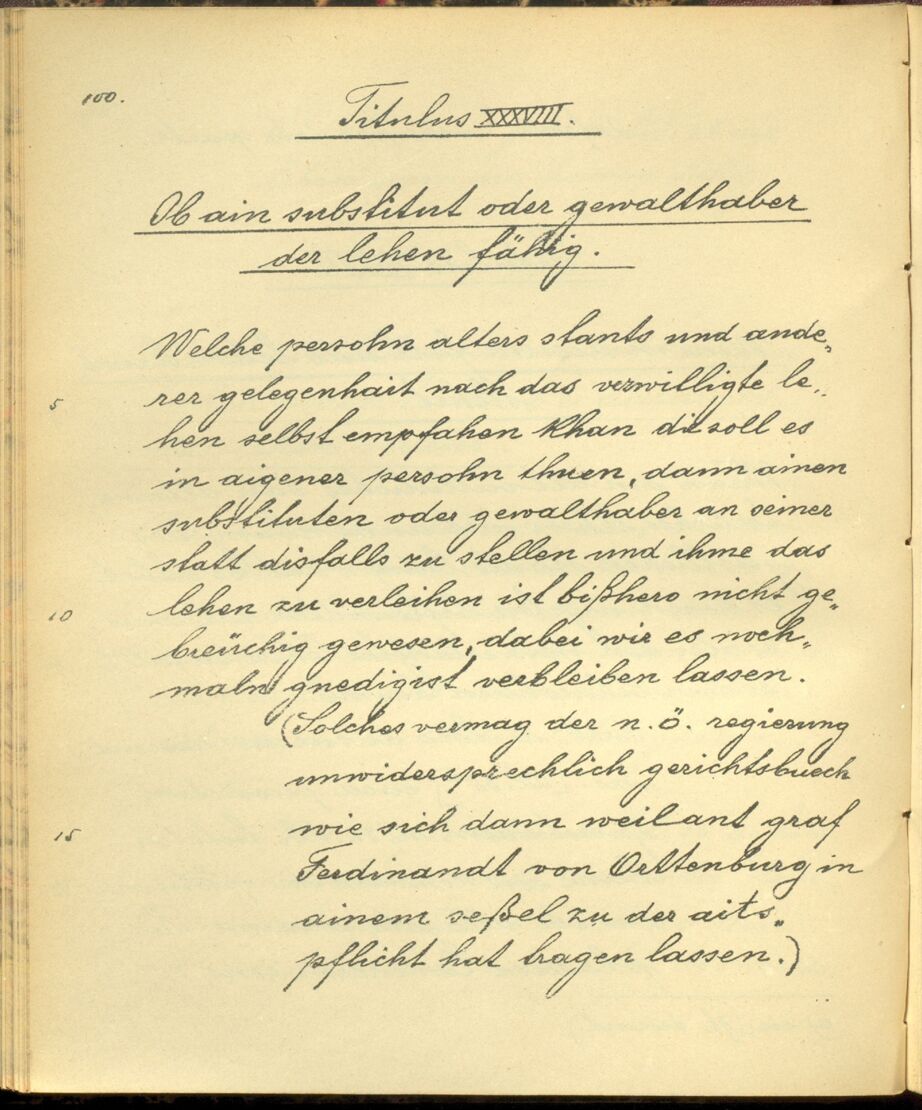 100.
Titulus XXXVIII.
Ob ain substitut oder gewalthaber
der lehen fähig.
Welche persohn alters stants und ande„
5 rer gelegenhait nach das verwilligte le„
hen selbst empfahen khan die soll es
in aigener persohn thuen, dann ainen
substituten oder gewalthaber an seiner
statt disfalls zu stellen und ihme das
10 lehen zu verleihen ist bißhero nicht ge„
breüchig gewesen, dabei wir es noch„
maln gnedigist verbleiben lassen.
(Solches vermag der n. ö. regierung
unwidersprechlich gerichtsbuech
15 wie sich dann weilant graf
Ferdinandt von Orttenburg in
ainem seßel zu der aits„
pflicht hat tragen lassen.)